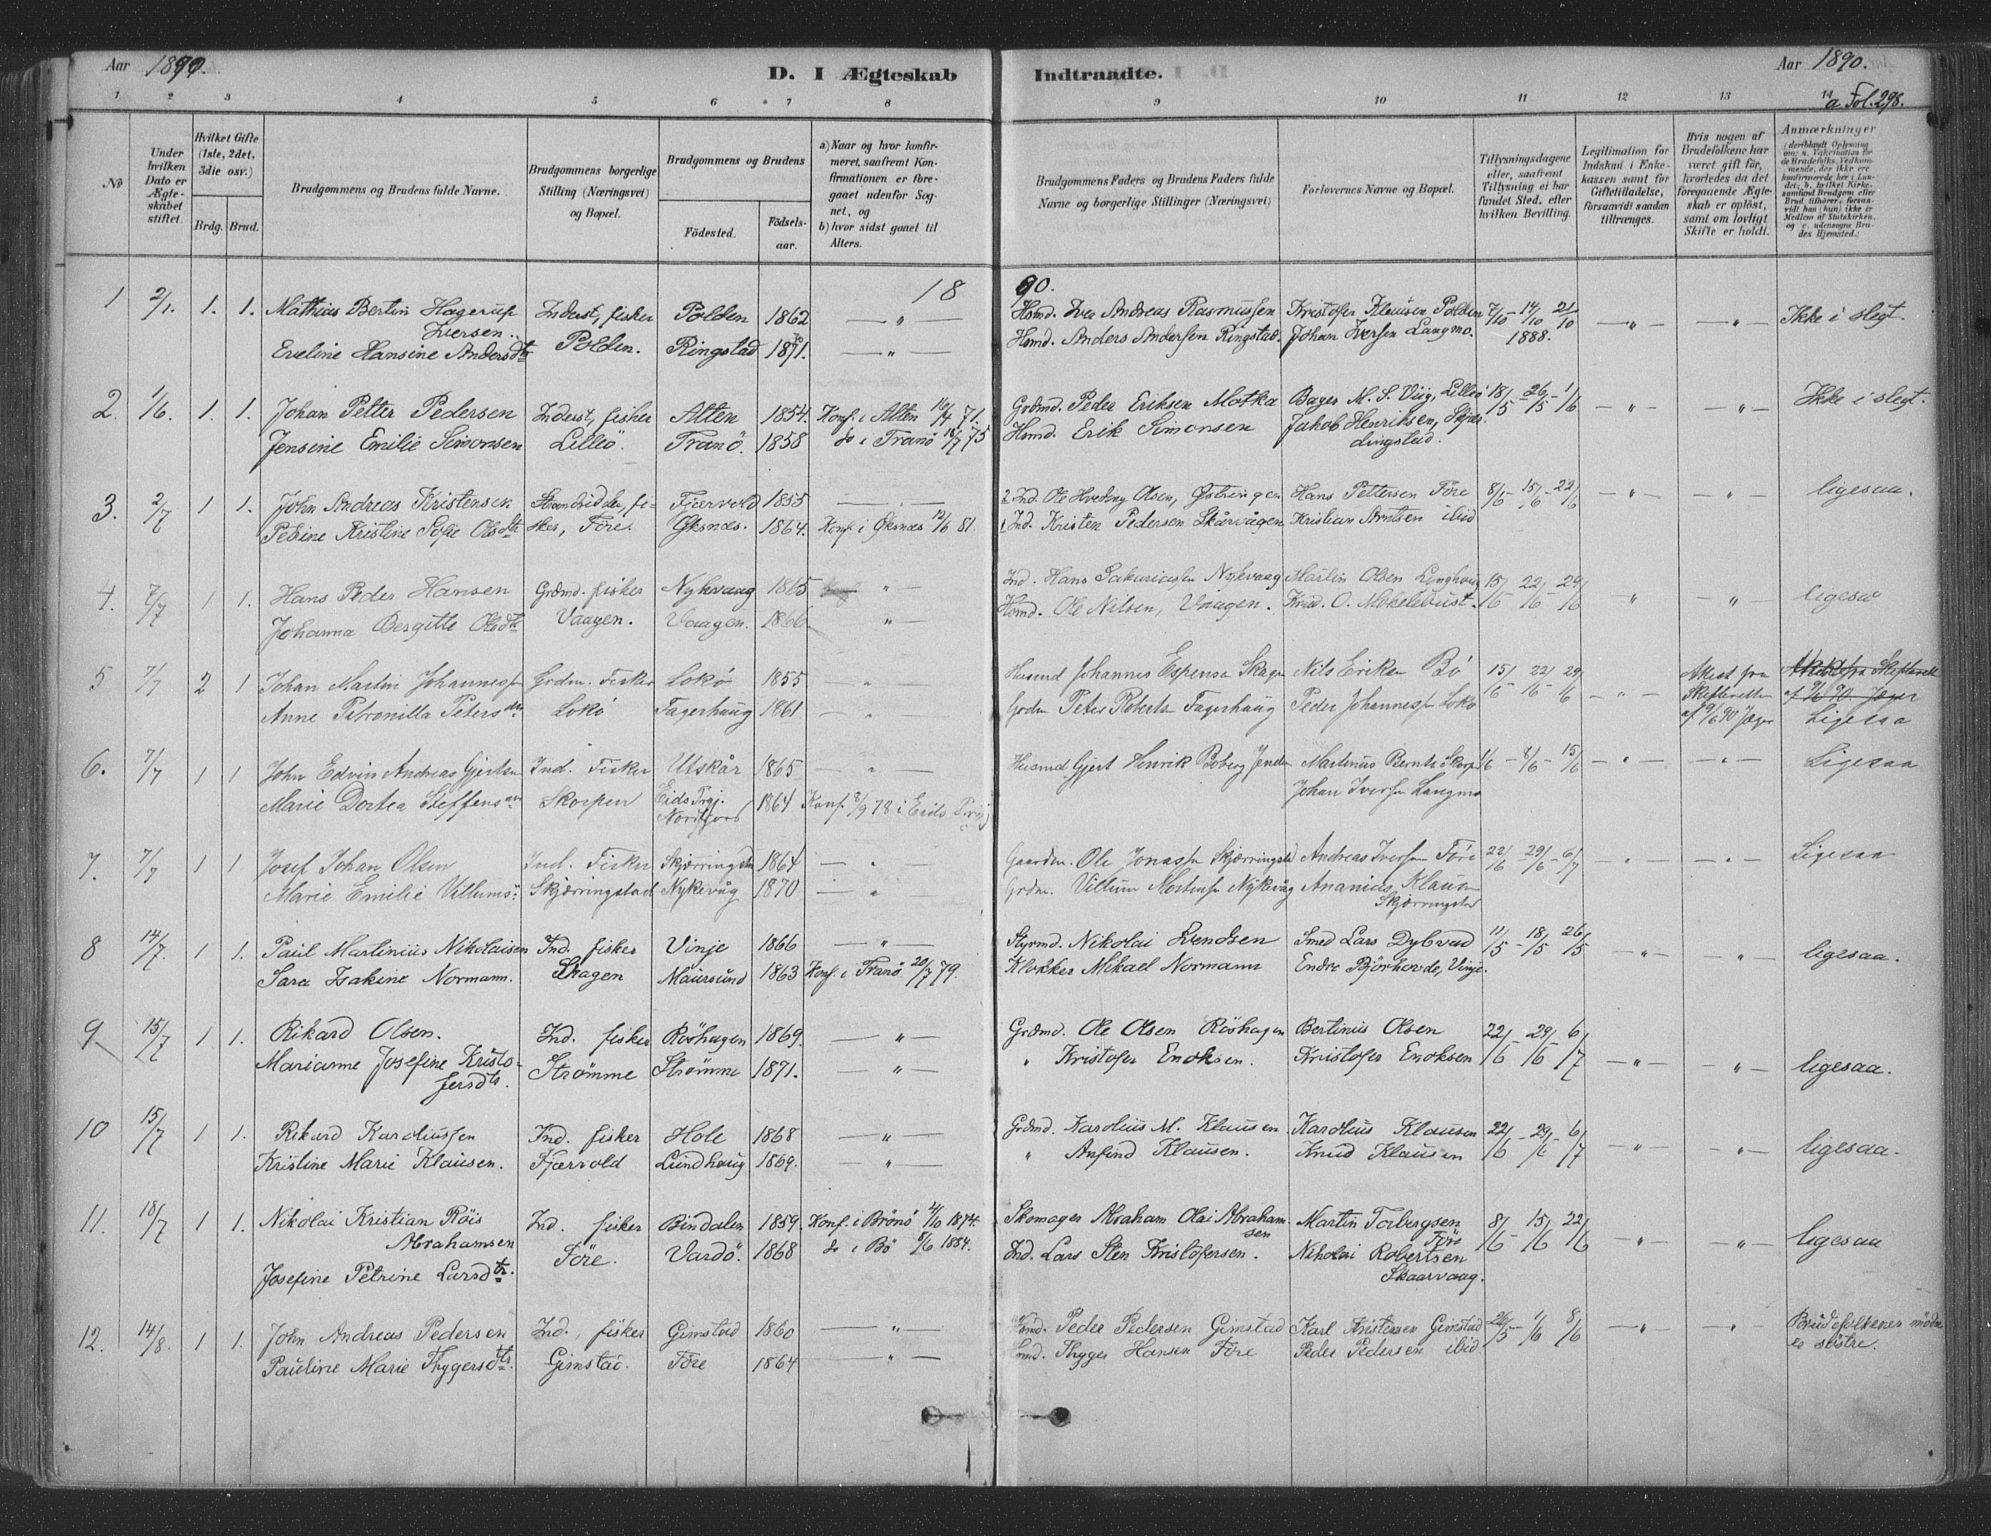 Aar 1890.
D. I Ægteskab Indtraadte.
Aar 1890.
a Fol. 298.
1 2 3 4 5 6 7 8 9 10 11 12 13 14
No
Under hvilken Dato er Ægteskabet stiftet.
Hvilket Gifte (1ste, 2det, 3die osv.)
Brdg. Brud.
Brudgommens og Brudens fulde Navne.
Brudgommens borgerlige Stilling (Næringsvei) og Bopæl.
Brudgommens og Brudens
Fødested.
Fødselsaar.
a) Naar og hvor konfirmeret, saafremt Konfirmationen er foregaaet udenfor Sognet, og
b) hvor sidst gaaet til Alters.
Brudgommens Faders og Brudens Faders fulde Navne og borgerlige Stillinger (Næringsvei)
Forlovernes Navne og Bopæl.
Tillysningsdagene eller, saafremt Tillysning ei har fundet Sted, efter hvilken Bevilling.
Legitimation for Indskud i Enkekassen samt for Giftetilladelse, forsaavidt saadan tiltrænges.
Hvis nogen af Brudefolkene har været gift før, hvorledes da det foregaaende Ægteskab er opløst, samt om lovligt Skifte er holdt.
Anmærkninger
18 90.
1 2/1. 1. 1. Mathias Bertin Hagerup Iversen. Inderst, fisker Polden 1862 — " — Hsmd. Iver Andreas Rasmussen Kristofer Klausen Polden 7/10 – 14/10 21/10 — " — — " — Ikke i slegt.
Eveline Hansine Andersdtr Polden. Ringstad 1871. — " — Hsmd. Anders Andersen Ringstad. Johan Iversen Langmo. 1888.
2. 1/6. 1. 1. Johan Petter Pedersen Inderst, fisker Alten 1854. Konf. i Alten 71. Grdmd. Peder Eriksen Matka Bager M. S. Viig, Lillö 18/5 – 26/5 – 1/6 — " — — " — Ikke i slegt.
Jensine Emilie Simonsen Lillö. Tranö. 1858 do i Tranö 75 Hsmd. Erik Simonsen Jakob Henriksen, Skjærdingstad.
3. 2/7 1 1. John Andreas Kristensen Strandsidder, fi- Fjærvold 1855 — " — 2. Ind. Ole Hveding Olsen, Østringen Hans Pettersen Före 8/6 – 15/6 – 22/6 — " — — " — ligesaa.
Petrine Kristine Sofie Olsdtr sker, Före. Øksnæs. 1864. Konf. i Øksnæs 12/6 81. 1. Ind. Kristen Pedersen Skårvågen Kristian Arntsen ibid
4. 7/7 1 1. Hans Peder Hansen Grdmd. fisker Nykvaag 1865 " Ind. Hans Sakariassen Nykvaag Martin Olsen 15/6 – 22/6 – 29/6 " — " — ligesaa
Johanna Bergitte Olsdtr Vaagen. Vaagen. 1866 — " — Hsmd. Ole Nilsen, Vaagen. Knud. O. Mökelebust.
5 7/7 2 1 Johan Martin Johannesen Grdm. Fisker Lokö 1855 — " — Husmd Johannes Espensen Skagen Nils Eriksen Bö 15/6 – 22/6 – 29/6 — " — Attest fra Skifteretten af 9/6 90 Jæger Attest fra Skifteret af 9/6 90 Jæger
Anne Petronilla Petersdtr Lokö Fagerhaug 1861 — " — Grdm Peter Roberts Fagerhaug Peder Johannessen Lokö Ligesaa
6. 7/7 1 1 John Edvin Andreas Gjertsen Ind. Fisker Utskår 1865 — " — Husmd Gjert Henrik Boberg Martinus Berntsen Skorpen 1/6 – 8/6 – 15/6 — " — — " — Ligesaa
Marie Dortea Steffensen Skorpen Eids Prgj. Nordfjord 1864 Konf. 8/9 78 i Eids Prgj Johan Iversen Langmo
7. 7/7 1 1 Josef Johan Olsen Ind. Fisker Skjærringstad 1864 — " — Gaardm. Ole Jonassen Skjærringstad Andreas Iversen Före 22/6 – 29/6 – 6/7 — " — — " — Ligesaa
Marie Emilie Villums Skjærringstad Nykevåg 1870 — " — Grdm. Villum Mortensen Nykevåg Ananias Klausen Skjærringstad
8 14/7. 1 1. Paul Martinius Nikolaisen Ind. fisker Vinje 1866 — " — Styrmd. Nikolai Svendsen Smed Lars Dybvad 11/5 – 18/5 26/5 — " — — " — ligesaa.
Sara Isakine Normann. Skagen Maursund 1863 Konf. i Tranö 20/7 79. Klokker Mikael Normann Endre Björhovde, Vinje.
9 15/7 1 1. Rikard Olsen. Ind. fisker Röshagen 1869. — " — Grdmd. Ole Olsen Röshagen Bertinius Olsen 22/6 – 29/6 – 6/7 — " — — " — ligesaa.
Marianne Josefine Kristofersdtr. Strömme Strömme 1871. — " — " Kristofer Enoksen. Kristofer Enoksen
10 15/7 1 1. Rikard Karoliussen Ind. fisker Hole 1868 — " — Grdmd. Karolius M. Klausen Karolius Klausen 22/6 – 29/6 – 6/7 — " — — " — ligesaa.
Kristine Marie Klausen. Fjærvold Lundhaug 1869. — " — " Anfind Klausen. Knud Klausen
11. 18/7 1 1. Nikolai Kristian Röis Abrahamsen Ind. fisker Bindalen 1859. Konf. i Brönö 4/10 1874. Skomager Abraham Olai Abrahamsen Martin Torbergsen Före 8/6 15/6 22/6 — " — — " — ligesaa
Josefine Petrine Larsdtr. Före. Vardö. 1868 do i Bö 8/6 1884. Ind. Lars Sten Kristofersen. Nikolai Robertsen Skaarvaag.
12. 14/8. 1 1. John Andreas Pedersen Ind., fisker Gimstad 1860 — " — Hsmd. Peder Pedersen Gimstad Karl Kristensen Gimstad 26/5 – 1/6 8/6 — " — — " — Brudefolkenes mødre er söstre.
Pauline Marie Thygersdtr. Gimstad. Före 1864 — " — Hsmd. Thyger Hansen Före Peder Pedersen ibid